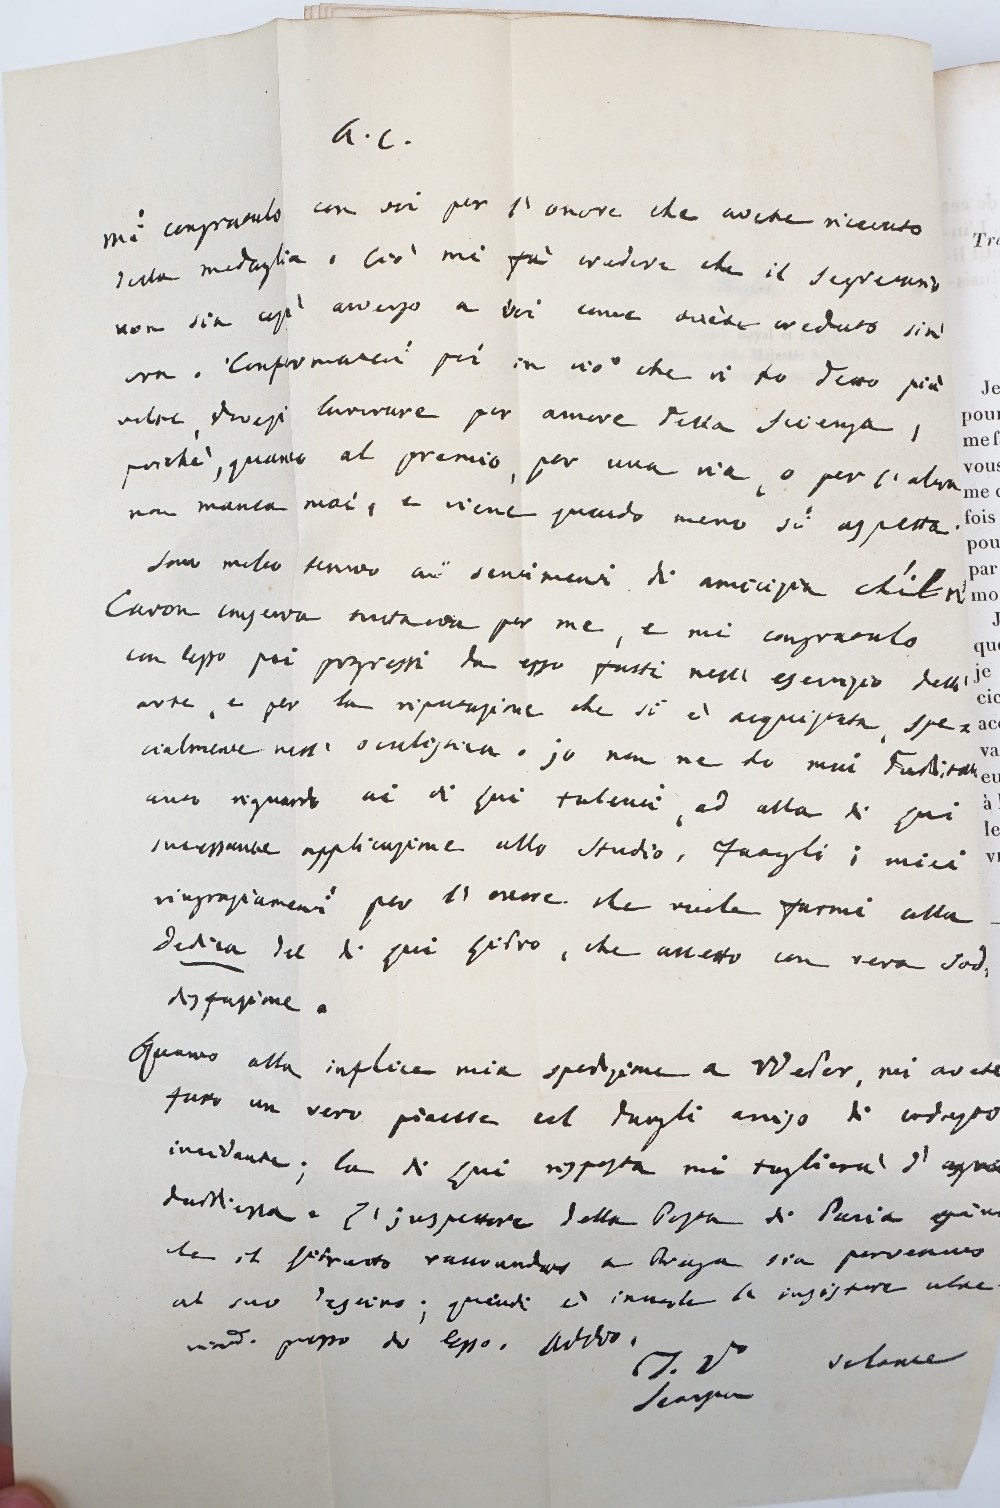 A. C.
Mi congratulo con voi per l'onore che avete ricevuto
della medaglia. Ciò mi fà credere che il Segretario
non sia così avverso a voi come avete creduto sin
ora. Conformatevi poi in ciò che vi ho detto più
volte, dovesi lavorare per amore della Scienza,
poichè, quanto al premio, per una via, o per l'altra
non manca mai, e viene quando meno si aspetta.
Sono molto tenuto ai sentimenti di amicizia che il
Caron conserva tuttavia per me, e mi congratulo
con esso pei progressi da esso fatti nell'esercizio dell'
arte, e per la riputazione che si è acquistata, spe=
cialmente nell'oculistica. Io non ne ho mai dubitato
avuto riguardo ai di lui talenti, ad alla di lui
incessante applicazione allo Studio. Fategli i miei
ringraziamenti per l'onore che vuole farmi colla
Dedica del di lui Libro, che accetto con vera Sod,
disfazione.
Quanto alla infelice mia spedizione a Weber, mi avete
fatto un vero piacere col dargli avviso di codesto
incidente; la di lui risposta mi toglierà d'ogni
dubbiezza. L'Inspettore della Posta di Pavia
che il Libretto raccomandato a Praga sia pervenuto
al suo destino; quindi è inutile l'insistere
presso di esso. Addio.
Scarpa